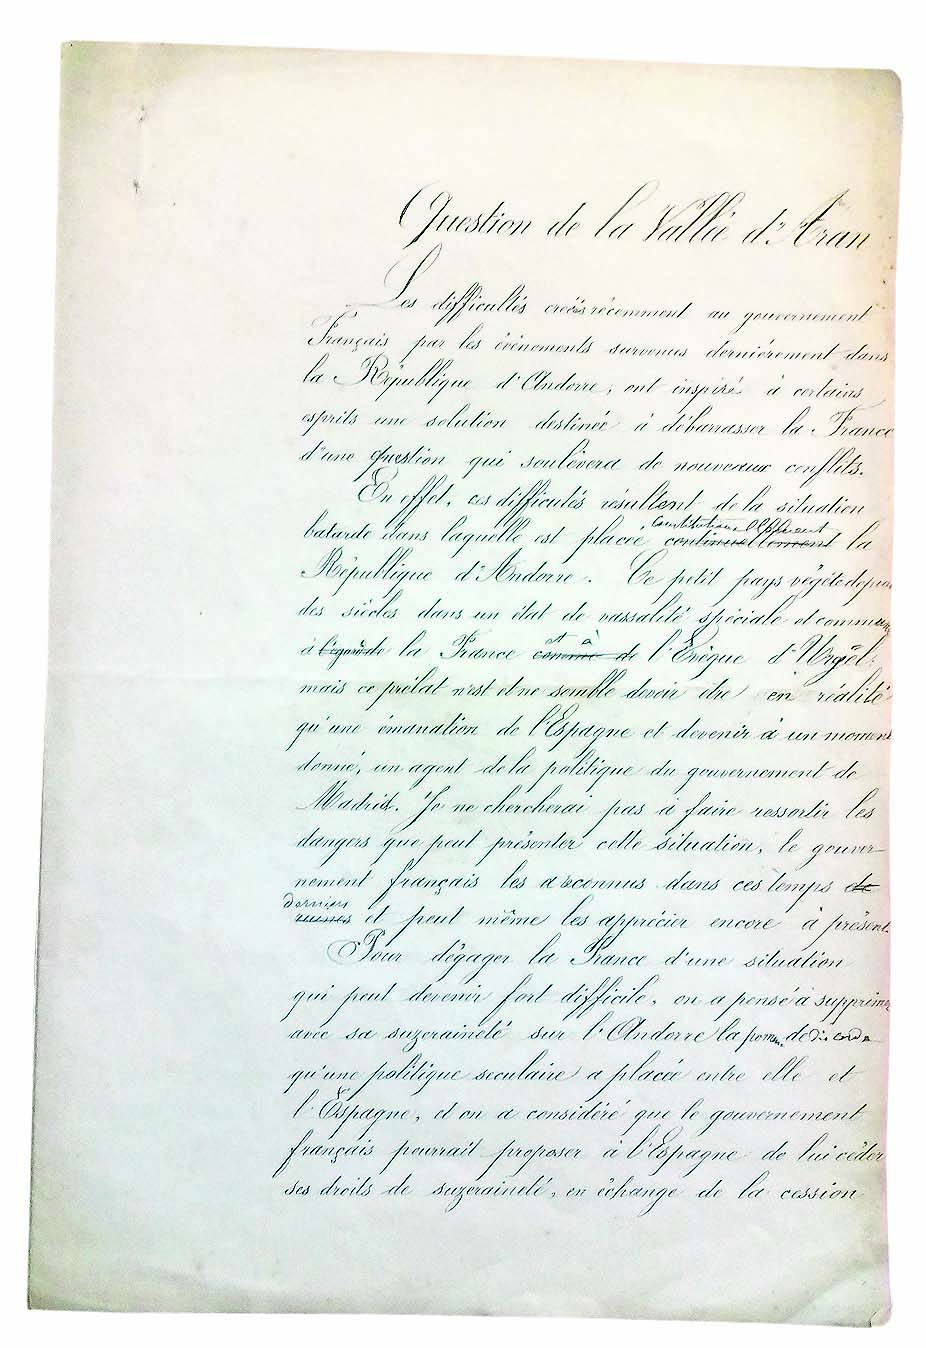 Question de la Vallée d'Aran
Les difficultés créées récemment au gouvernement
Français par les événements survenus dernièrement dans
la République d'Andorre, ont inspiré à certains
esprits une solution destinée à débarrasser la France
d'une question qui soulèvera de nouveaux conflits.
En effet, ces difficultés résultent de la situation
constitutionellement
batarde dans laquelle est placée continuellement la
République d'Andorre. Ce petit pays végète depuis
des siècles dans un état de vassalité spéciale et commune
et à
à l'égard de la France comme de l'Evêque d'Urgel;
mais ce prélat n'est et ne semble devoir être en réalité
qu'une émanation de l'Espagne et devenir à un moment
donné, un agent de la politique du gouvernement de
Madrid. Je ne chercherai pas à faire ressortir les
dangers que peut présenter cette situation, le gouver-
nement français les a reconnus dans ces temps de
derniers
et peut même les apprécier encore à présent.
Pour dégager la France d'une situation
qui peut devenir fort difficile, on a pensé à supprimer
avec sa suzeraineté sur l'Andorre la pomme de discorde
qu'une politique seculaire a placée entre elle et
l'Espagne, et on a considéré que le gouvernement
français pourrait proposer à l'Espagne de lui céder
ses droits de suzeraineté, en échange de la cession